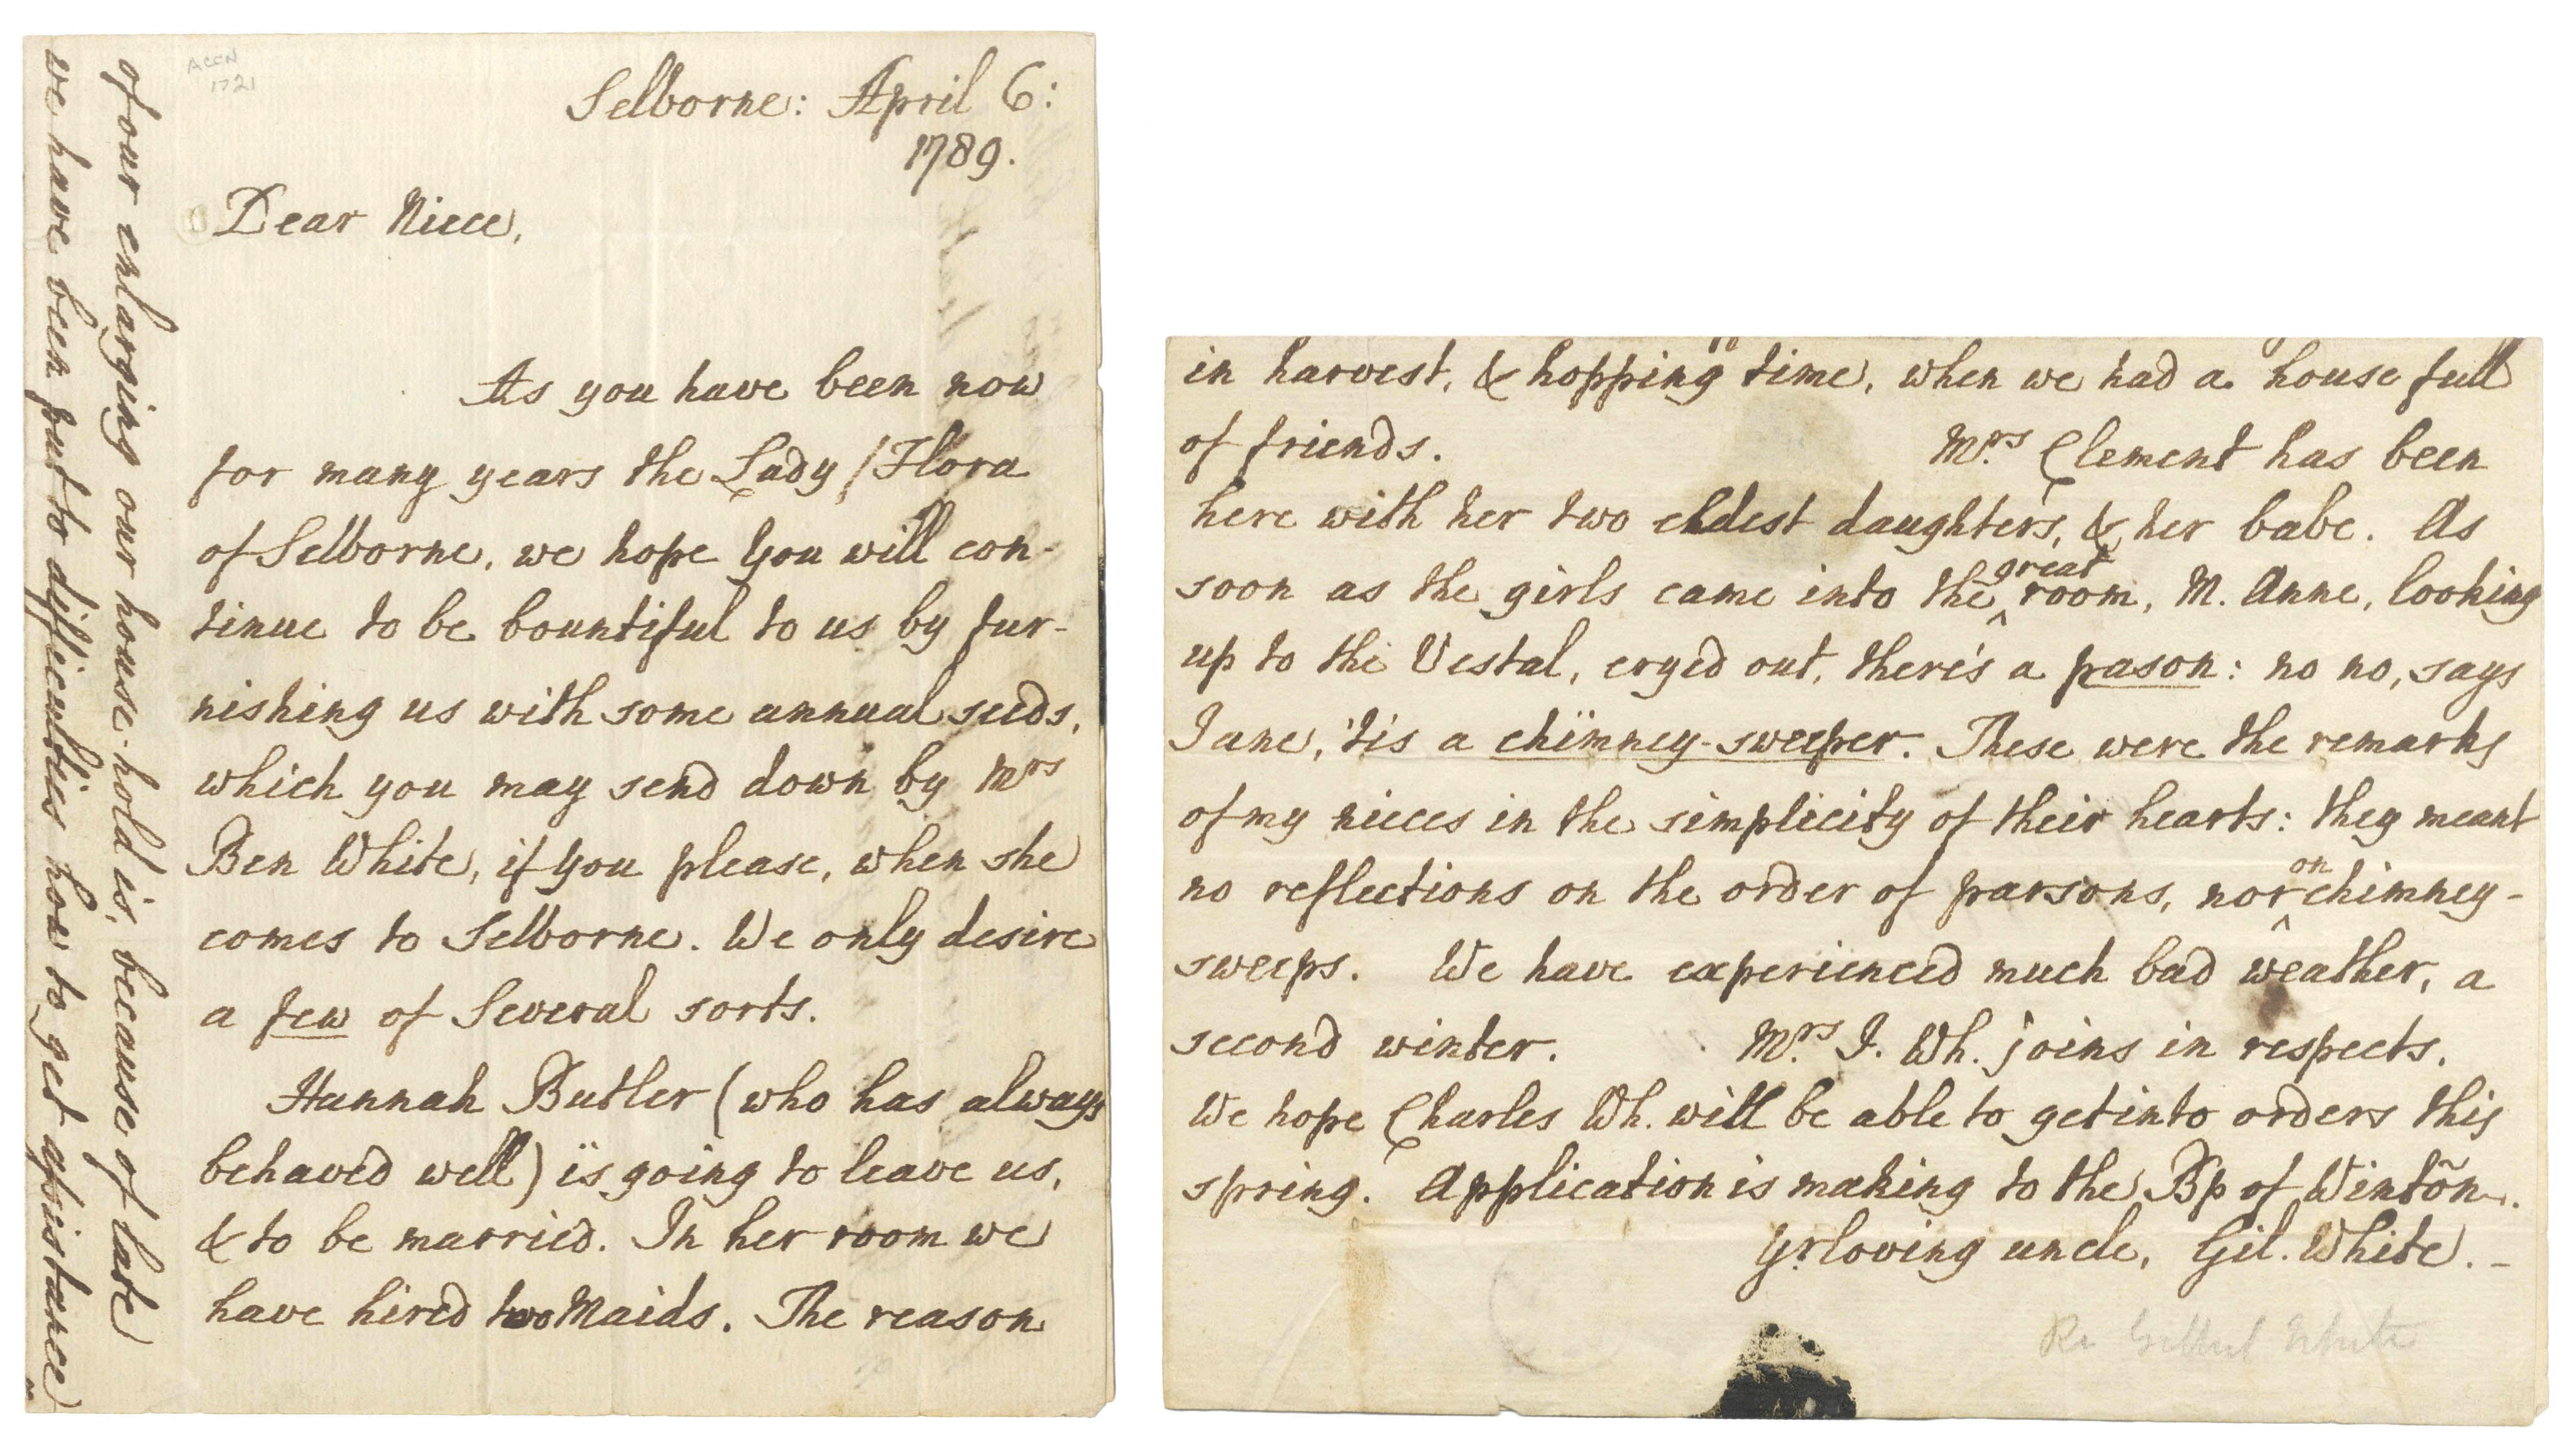 ACCN
1721
Selborne: April 6:
1789.
Dear Niece,
As you have been now
for many years the Lady /Flora
of Selborne, we hope You will con-
tinue to be bountiful to us by fur-
nishing us with some annual seeds,
which you may send down by Mrs
Ben White, if You please, when she
comes to Selborne. We only desire
a few of Several sorts.
Hannah Butler (who has always
behaved well) is going to leave us,
& to be married. In her room we
have hired two Maids. The reason
of our enlarging our house-hold is, because of late
we have been put to difficulties how to get assistance
in harvest, & hopping time, when we had a house full
of friends. Mrs Clement has been
here with her two eldest daughters, & her babe. As
soon as the great room, M. Anne, looking
up to the Vestal, cryed out, there's a pason: no no, says
Jane, 'tis a chimney-sweeper. These were the remarks
of my nieces in the simplicity of their hearts: they meant
no reflections on the order of parsons, nor on chimney-
sweeps. We have experienced much bad weather, a
second winter. Mrs J. Wh. joins in respects.
We hope Charles Wh. will be able to get into orders this
spring. Application is making to the Bp of Wintõn.
Yr loving uncle, Gil. White. -
Rev Gilbert White